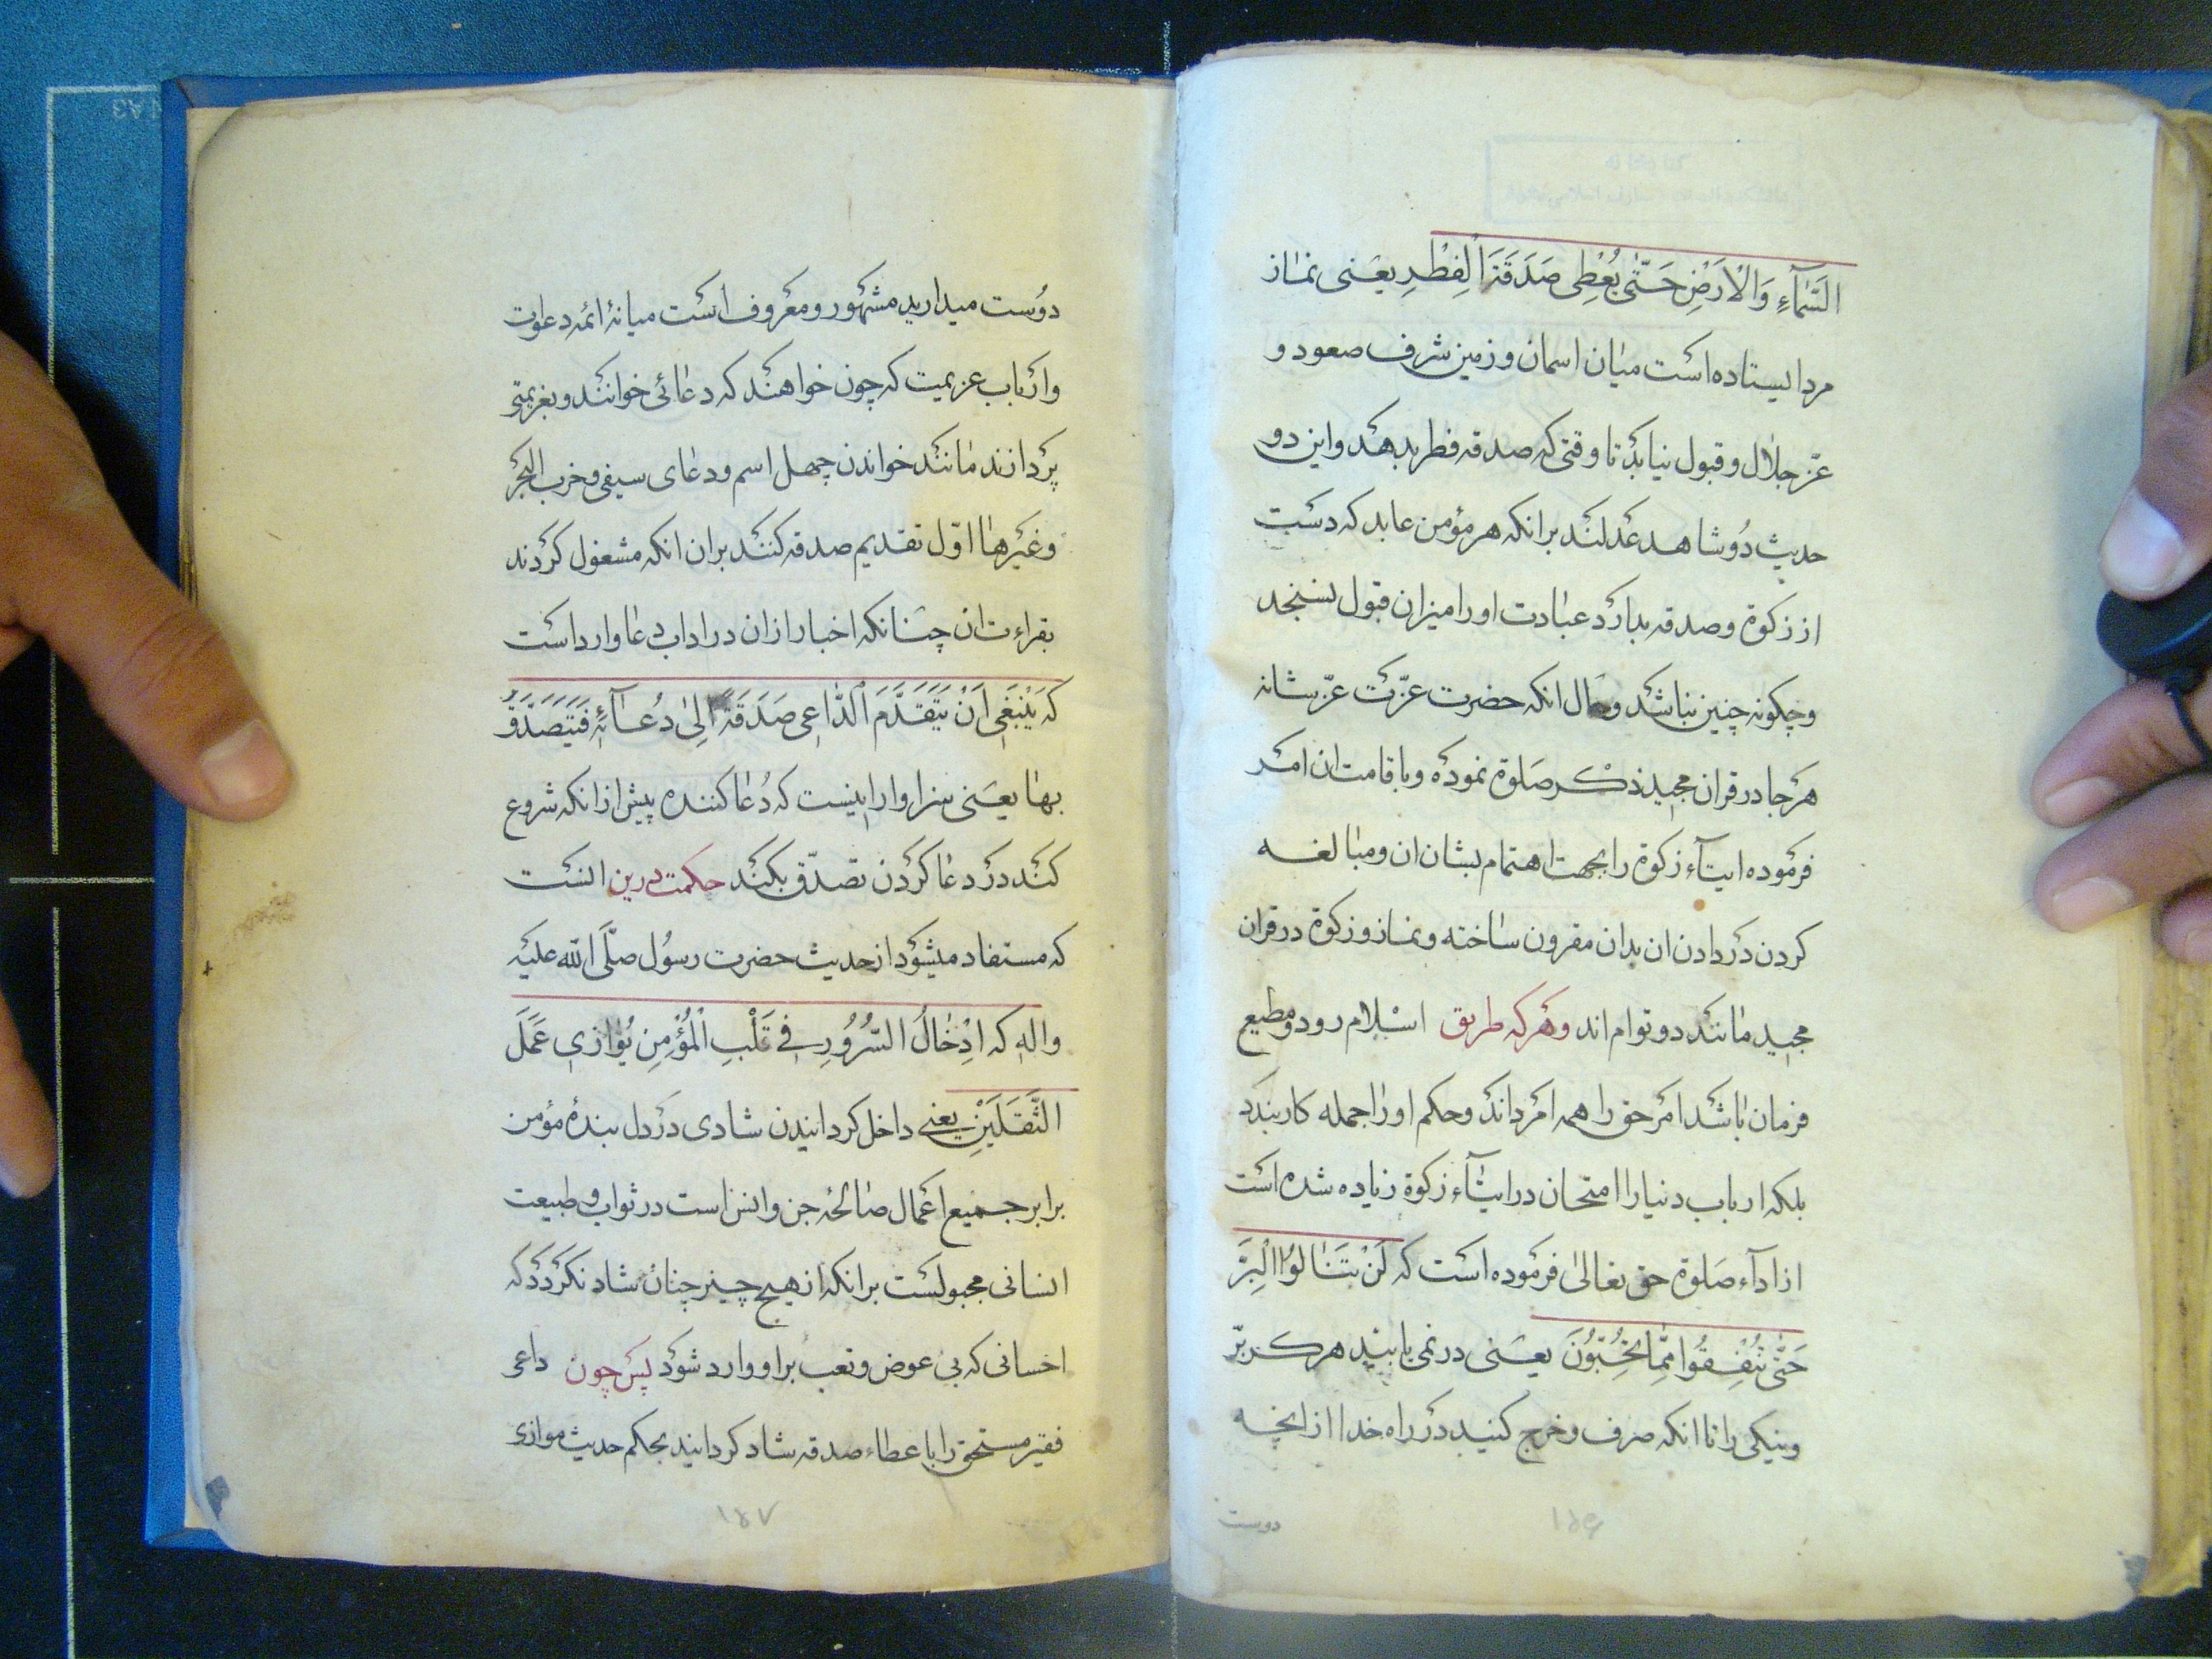 السَّمَآءِ وَالْاَرْضِ حَتّٰى يُعْطِى صَدَقَةَ الْفِطْرِ يعنى نماز
مرد ایستاده است میان اسمان و زمین شرف صعود و
عزّ جلال و قبول نیابد تا وقتی که صدقه فطر بدهد و این دو
حدیث دو شاهد عدلند برانکه هر مؤمن عابد که دست
از زکوة و صدقه بدارد عبادت او را میزان قبول نسنجد
و چکونه چنین نباشد و حال انکه حضرت عزّت عزّ شانه
هر جا در قران مجید ذکر صلوة نموده و باقامت ان امر
فرموده ایتآء زکوة را بجهت اهتمام بشان ان و مبالغه
کردن در دادن ان بدان مقرون ساخته و نماز و زکوة در قران
مجید مانند دو توام اند و هر که طریق اسلام رود و مطیع
فرمان باشد امر حق را همه امر داند و حکم او را جمله کار بندد
بلکه ارباب دنیا را امتحان در ایتآء زکوة زیاده شده است
از ادآء صلوة حق تعالی فرموده است که لَنْ تَنَالُوا الْبِرَّ
حَتّٰى تُنْفِقُوا مِمَّا تُحِبُّونَ یعنی در نمی یابید هرکز برّ
و نیکی را تا انکه صرف و خرج کنید در راه خدا از انچه
دوست
۱۵۶
دوست میدارید مشهور و معروف است میانۀ ائمه دعوات
و ارباب عزیمت که چون خواهند که دعائی خوانند و بعزیمتی
پردازند مانند خواندن چهل اسم و دعای سیفی و حزب البحر
و غیرها اول تقدیم صدقه کنند بران انکه مشغول کردند
بقراءت ان چنانکه اخبار ازان در اداب دعا وارد است
که يَنْبَغِى اَنْ يَتَقَدَّمَ الدَّاعِى صَدَقَةً اِلٰى دُعَآئِهِ فَيَتَصَدَّقُ
بها یعنی سزاوار اینست که دعا کننده پیش از انکه شروع
کند در دعا کردن تصدّق بکند حکمت درین انست
که مستفاد میشود از حدیث حضرت رسول صلّی الله علیه
واله که اِدْخَالُ السُّرُورِ فِى قَلْبِ الْمُؤْمِنِ يُوَازِى عَمَلَ
الثَّقَلَيْنِ یعنی داخل کردانیدن شادی در دل بندۀ مؤمن
برابر جمیع اعمال صالحۀ جن و انس است در ثواب و طبیعت
انسانی مجبولست برانکه از هیچ چیز چنان شاد نکردد که
احسانی که بی عوض و تعب بر او وارد شود پس چون داعی
فقیر مستحق را باعطاء صدقه شاد کردانید بحکم حدیث موازی
۱۵۷